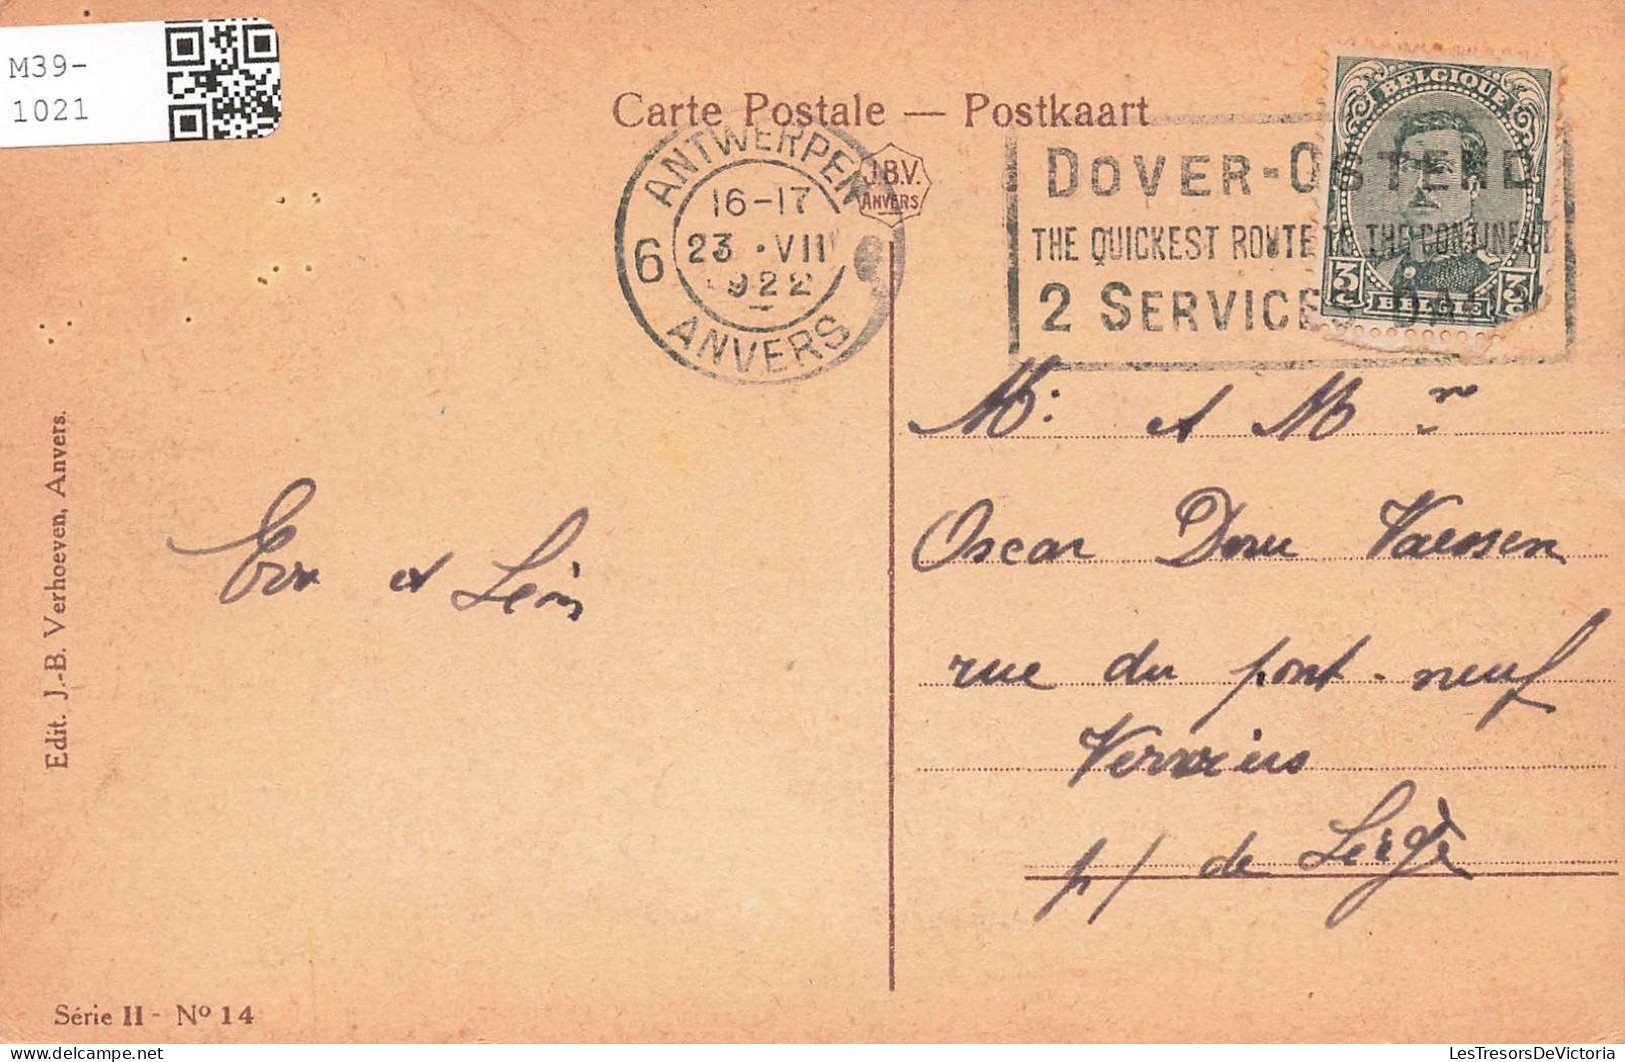 M39-
1021
Carte Postale — Postkaart
J.B.V.
ANVERS
ANTWERPEN
16-17
23 · VII
1922
6
ANVERS
DOVER-OSTEND
THE QUICKEST ROUTE TO THE CONTINENT
2 SERVICES
BELGIQUE
3 BELGIË 3
Mr. et Mm
Oscar Vaessen
rue du pont-neuf
Verviers
p/ de Liège
et Léon
Edit. J.-B. Verhoeven, Anvers.
Série II - Nº 14
LesTresorsDeVictoria
delcampe.net